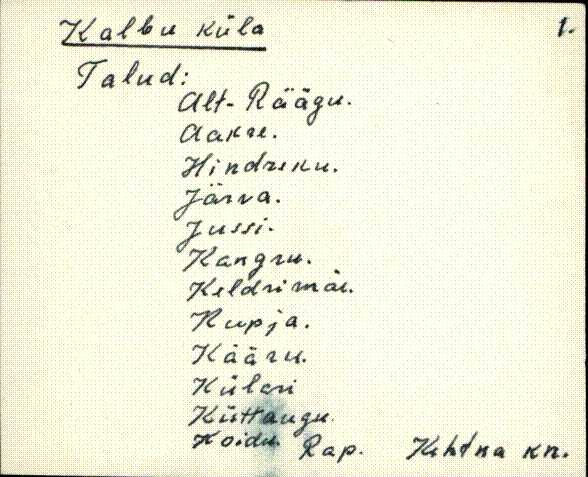 Kalbu küla 1.
Talud:
Alt-Räägu.
Aakre.
Hindreku.
Järva.
Jussi.
Kangru.
Keldrimäe.
Kupja.
Kääru.
Külasi
Küttaugu.
Koidu. Rap. Kehtna kn.